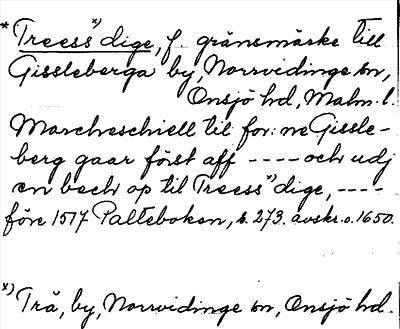 * Treess*) dige, f. gränsmärke till
Gissleberga by, Norrvidinge sn,
Onsjö hd, Malm. l.
Marcheschiell til for:ne Gissle-
berg gaar först aff ---- och udj
en bech op til Treess*) dige, ----
före 1517 Palteboken, s. 273. avskr. o. 1650.
*) Trä, by, Norrvidinge sn, Onsjö hd.